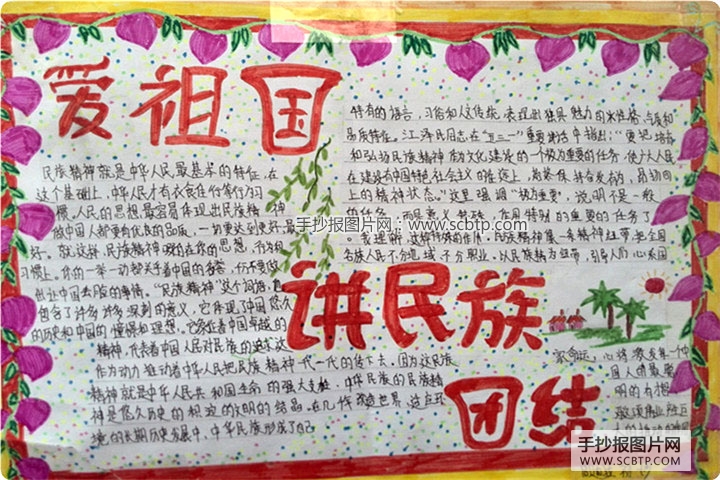 爱祖国
民族精神就是中华人民最基本的特征,在
这个基础上,中华人民才有衣食住行等行习
惯,人民的思想最容易体现出民族精神
做中国人都要有优良的品质,一切要达到更好,最
好。就这样,民族精神现在你的思想,行为和
习惯上。你的一举一动都关着中国的
出让中国丢脸的事情。"民族精神"这个词语,
包含了许多许多深刻的意义,它体现了中国悠久
的历史和中国的憧憬和理想。它
精神,代表着中国人民对民族的追求
作为动力推动着中华人民把民族精神一代一代的传下去,因为这民族
精神就是中华人民共和国生命的强大支柱,中华民族的民族精
神是悠久历史的积淀的文明的结晶。在几千年改造世界,适应环
境的长期历史发展中,中华民族形成了自己
特有的语言,习俗和人文传统,表现出独具魅力的水性格,气质和
品质特征。江泽民同志在"五三一"重要讲话中指出:"要把培育
和弘扬民族精神作为文化建设的一个极为重要的任务,使广大人民
在建设有中国特色社会主义的征途上,始终保持奋发有为,昂扬向
上的精神状态。"这里强调"极为重要",说明不是一般
的任务,而是意义特殊,作用特别的重要的任务了
民族精神集一条精神纽带,把全国
各族人民不分地域,不分职业,以民族精神为纽带,引导人们心系国
讲民族
团结
家命运,心将激发每一个中
国人
明的有
手抄报图片网:www.scbtp.com
手抄报图片网
WWW.SCBTP.COM